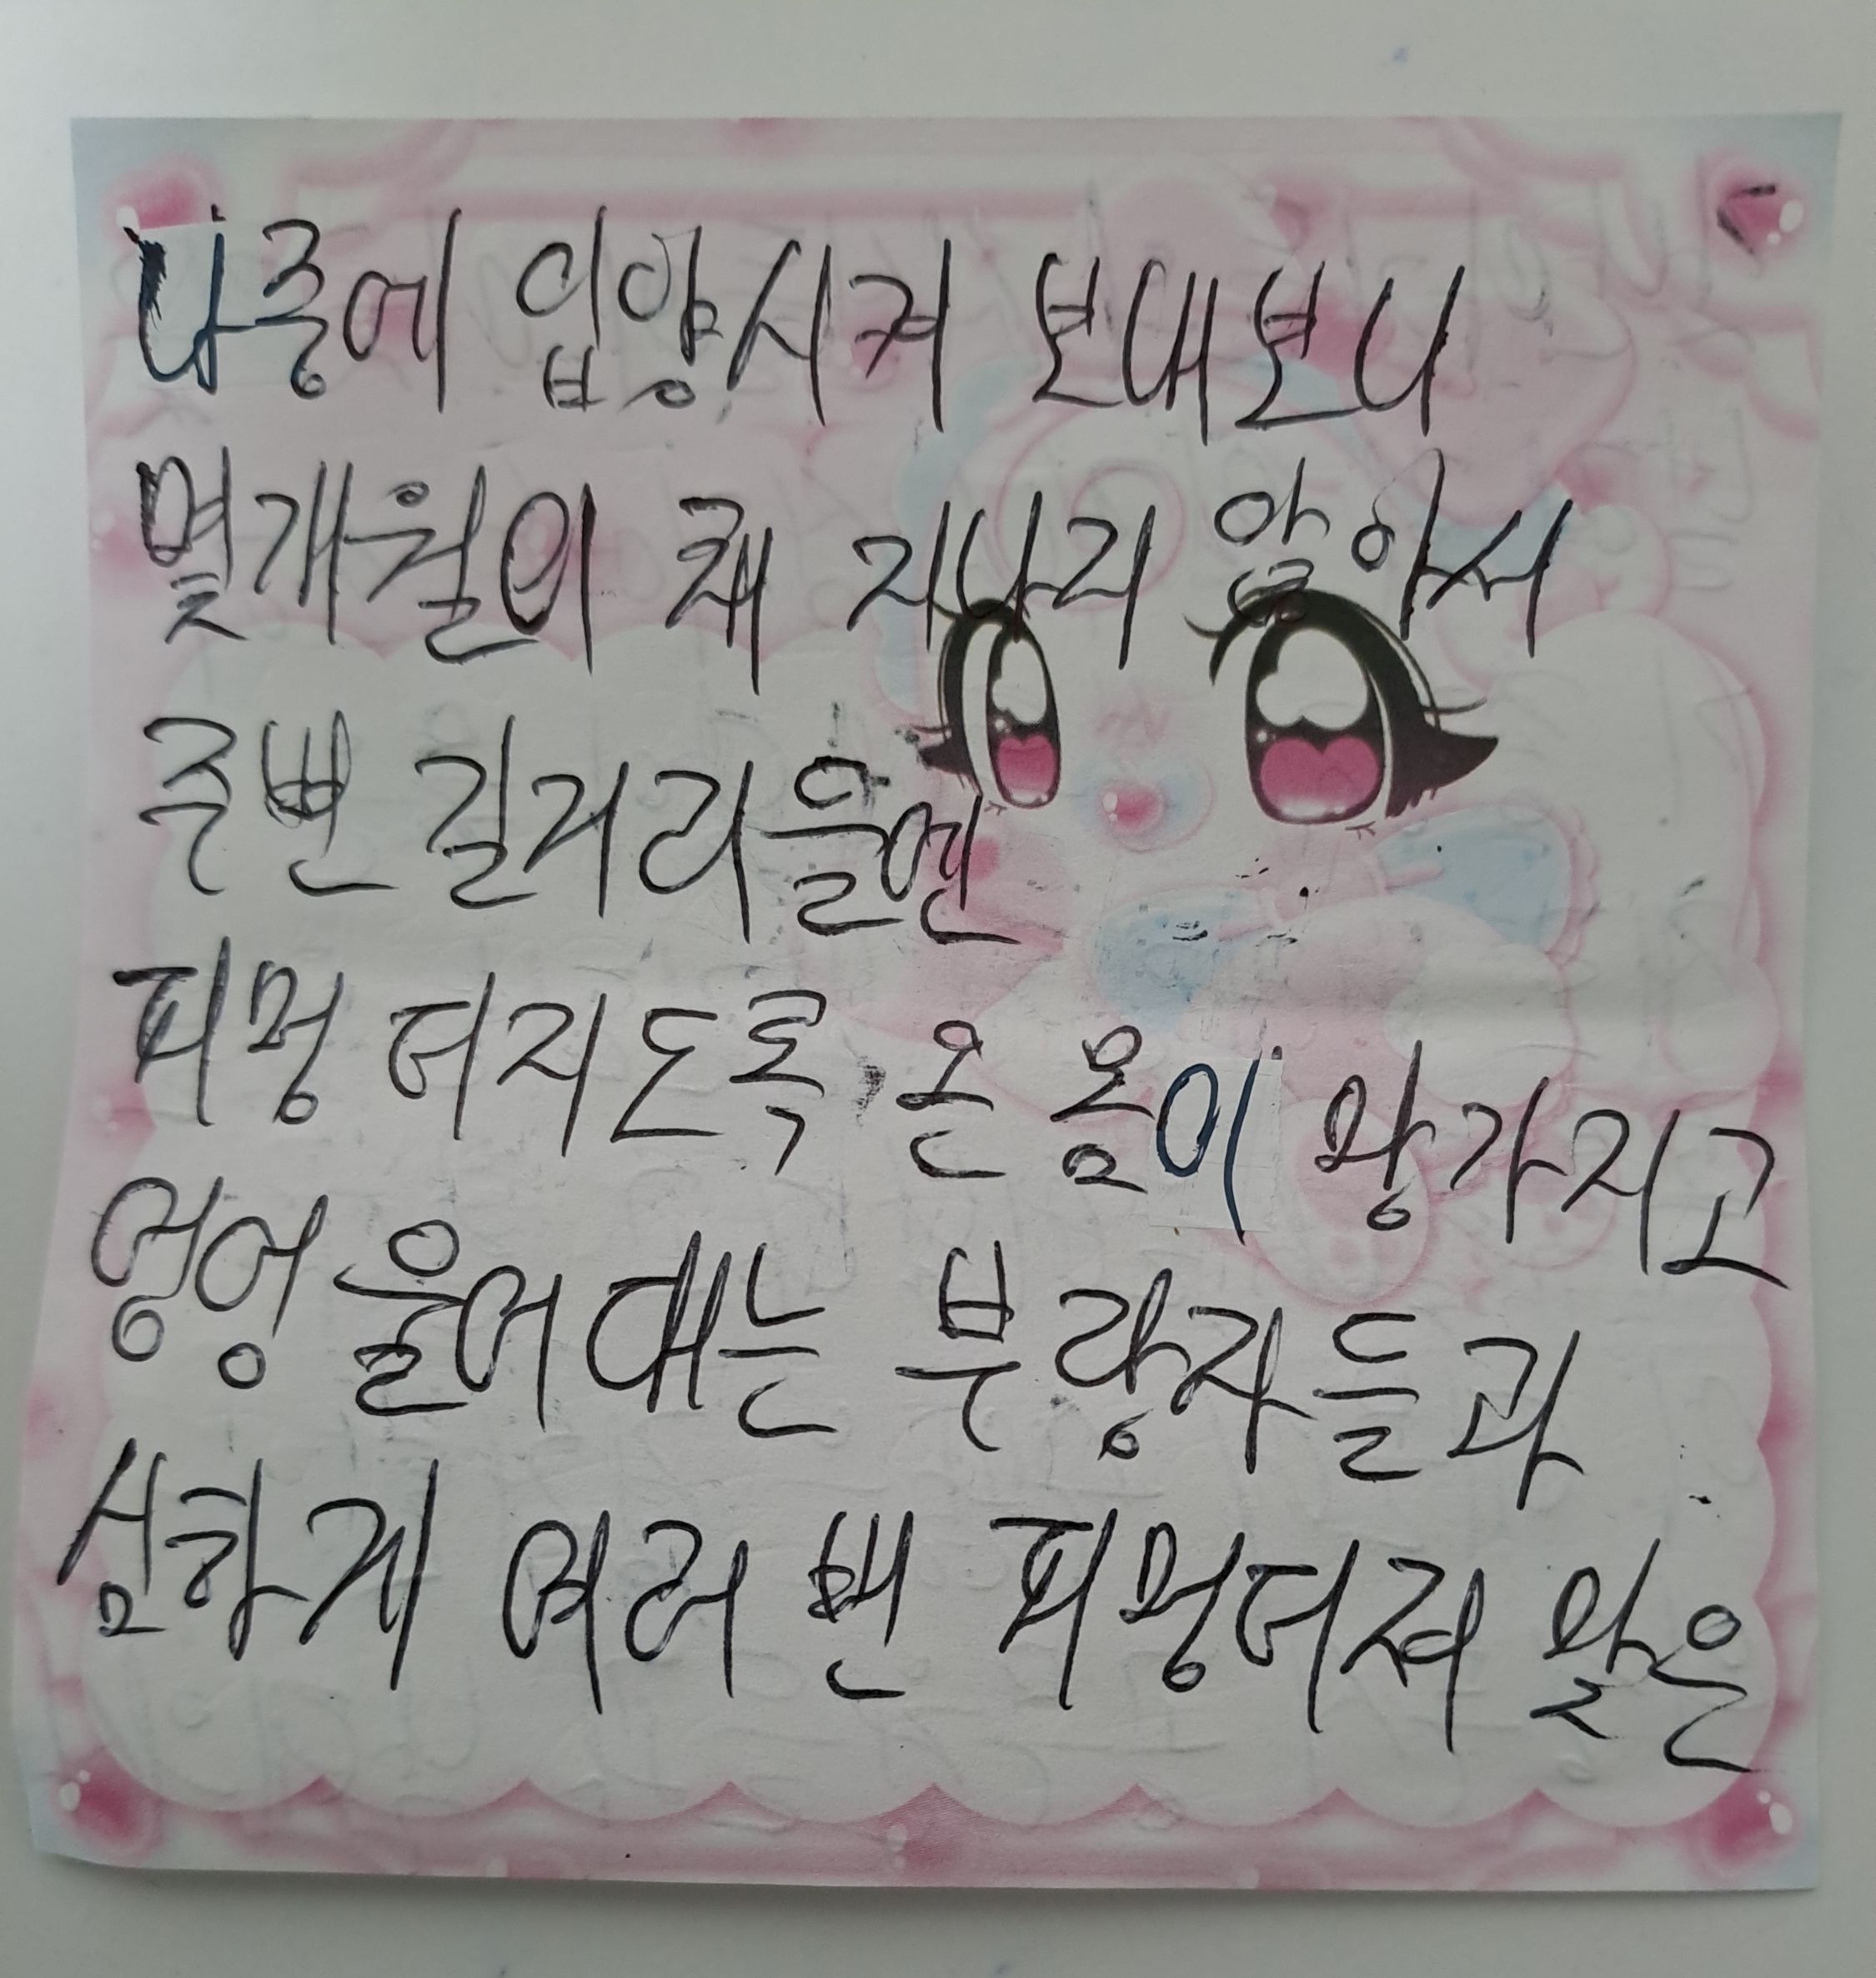 나중에 입양시켜 보내보니
몇개월의 채 지나지 않아서
주변 길거리들엔
피멍 터지도록 온 몸이 망가지고
엉엉 울어대는 부랑자들과
심하게 여러 밴 피멍터져 맞은